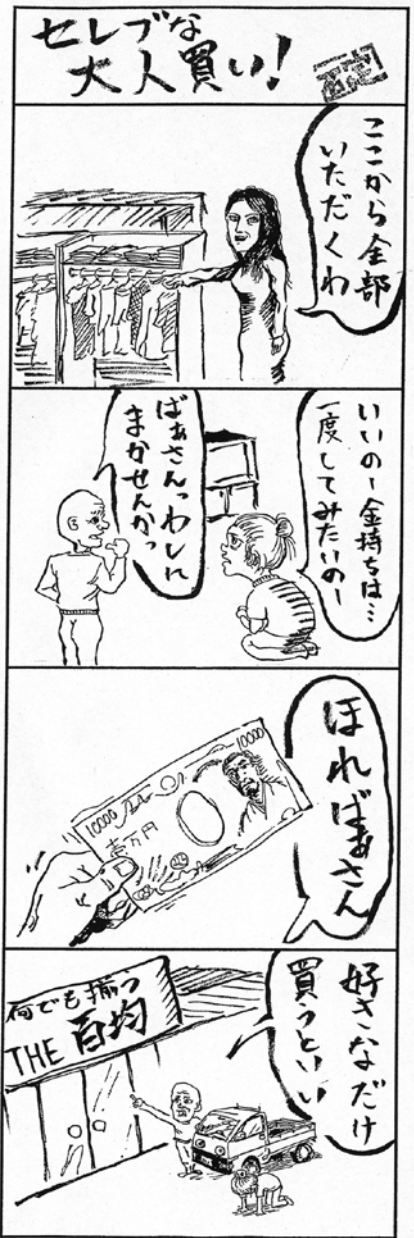 セレブな
大人買い!
ここから全部
いただくわ
いいのー金持ちは…
一度してみたいのー
ばぁさんっわしに
まかせんかっ
ほればぁさん
10000
10000
壱万円
好きなだけ
買うといい
何でも揃う
THE 百均